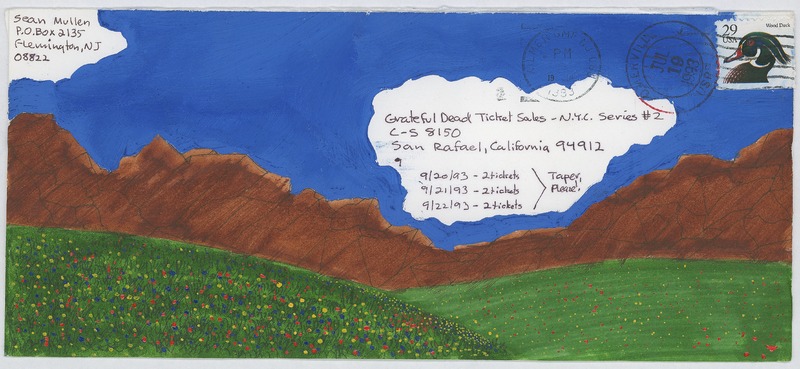 Sean Mullen
P.O. Box 2135
Flemington, NJ
08822
29
USA
Wood Duck
JUL
19
1993
Grateful Dead Ticket Sales - N.Y.C. Series #2
C-S 8150
San Rafael, California 94912
9/20/93 - 2 tickets
9/21/93 - 2 tickets
9/22/93 - 2 tickets
Taper,
Please!